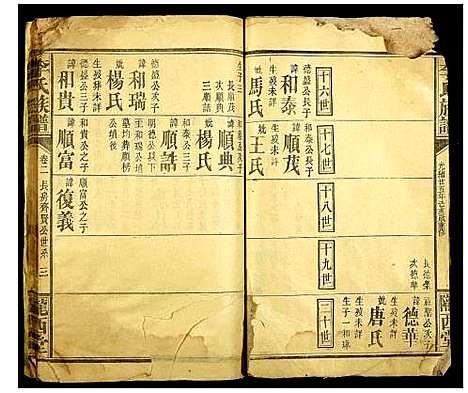 十六世
十七世
十八世
十九世
二十世
德盛公長子
諱和泰
生歿未詳
妣馬氏
和泰公長子
諱順茂
生歿未詳
妣王氏
長德榮
次德華
諱德華
生歿未詳
妣唐氏
生歿未詳
生子一和璋
生子三
長順茂
次順典
三順誥
德盛公次子
諱和瑞
生歿未詳
妣楊氏
德盛公三子
諱相貴
和泰公次子
諱順典
生歿未詳
妣楊氏
和泰公三子
諱順誥
明德公
和貴公之子
諱順富
順富公之子
諱復義
李氏族譜
卷二
長房齊賢公世系
三
隴西堂